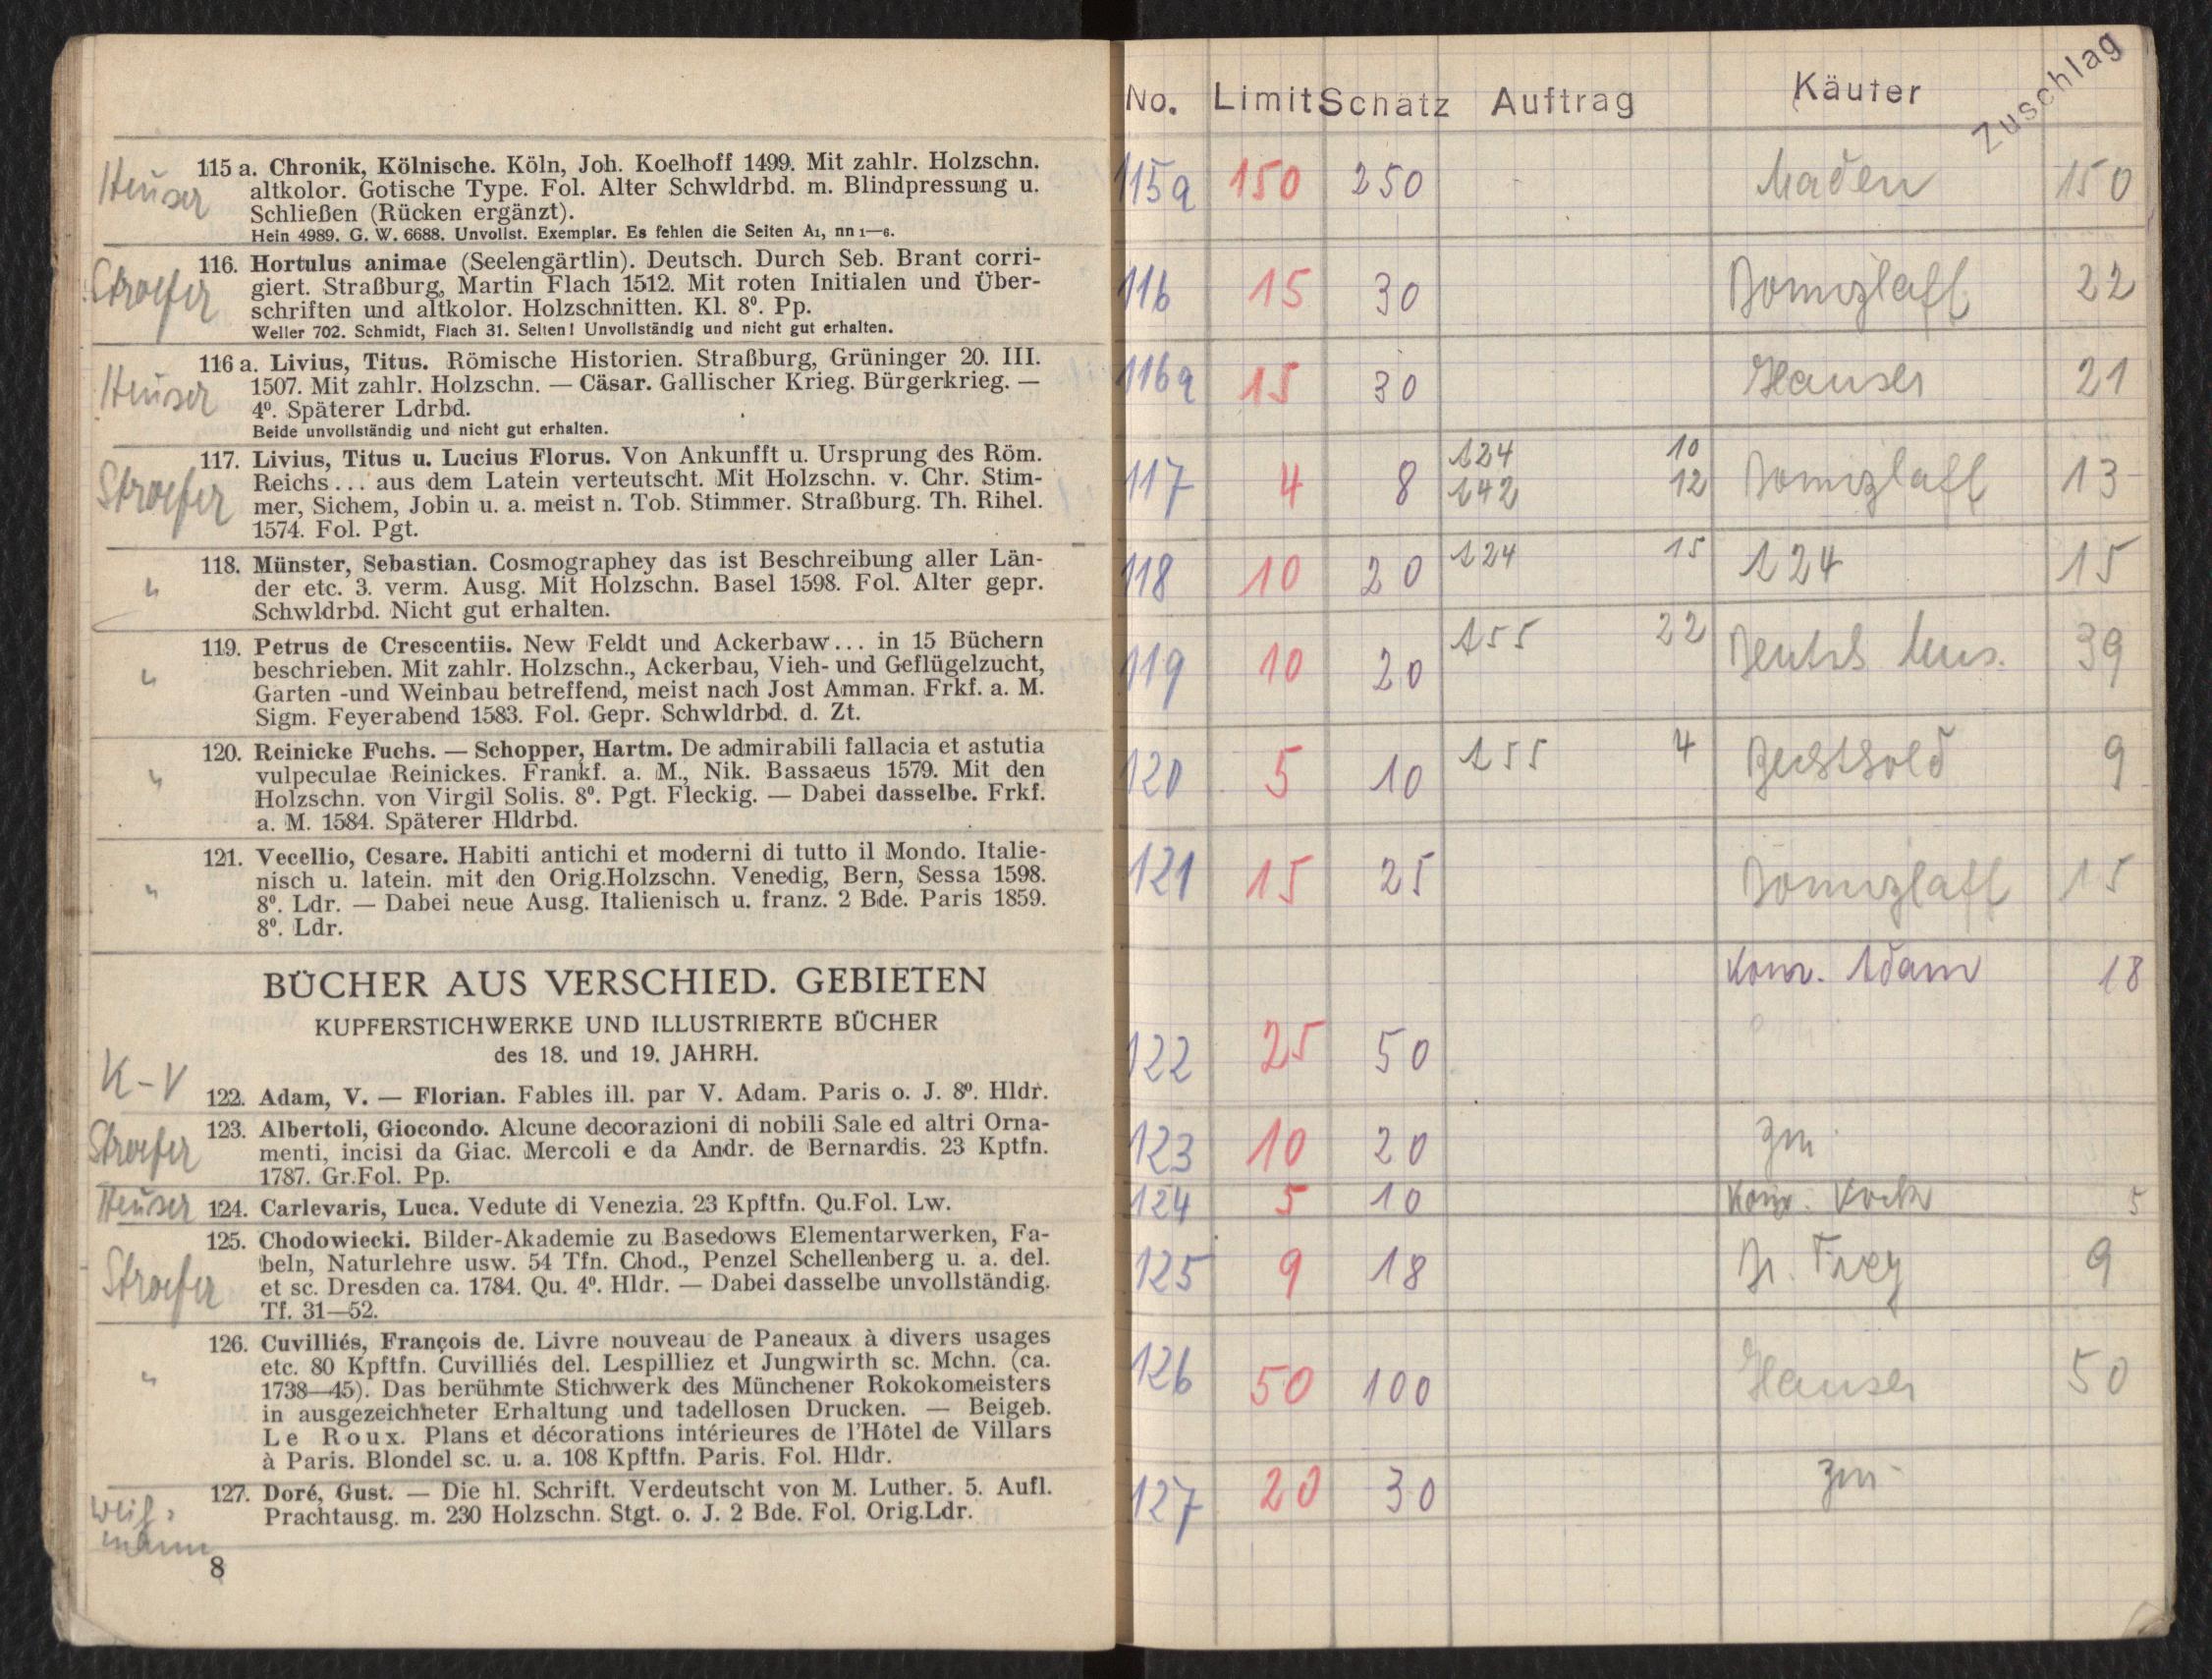 Heuser
115 a. Chronik, Kölnische. Köln, Joh. Koelhoff 1499. Mit zahlr. Holzschn.
altkolor. Gotische Type. Fol. Alter Schwldrbd. m. Blindpressung u.
Schließen (Rücken ergänzt).
Hein 4989. G. W. 6688. Unvollst. Exemplar. Es fehlen die Seiten A1, nn 1—6.
Stroefer
116. Hortulus animae (Seelengärtlin). Deutsch. Durch Seb. Brant corri-
giert. Straßburg, Martin Flach 1512. Mit roten Initialen und Über-
schriften und altkolor. Holzschnitten. Kl. 8⁰. Pp.
Weller 702. Schmidt, Flach 31. Selten! Unvollständig und nicht gut erhalten.
Heuser
116 a. Livius, Titus. Römische Historien. Straßburg, Grüninger 20. III.
1507. Mit zahlr. Holzschn. — Cäsar. Gallischer Krieg. Bürgerkrieg. —
4⁰. Späterer Ldrbd.
Beide unvollständig und nicht gut erhalten.
Stroefer
117. Livius, Titus u. Lucius Florus. Von Ankunfft u. Ursprung des Röm.
Reichs... aus dem Latein verteutscht. Mit Holzschn. v. Chr. Stim-
mer, Sichem, Jobin u. a. meist n. Tob. Stimmer. Straßburg. Th. Rihel.
1574. Fol. Pgt.
"
118. Münster, Sebastian. Cosmographey das ist Beschreibung aller Län-
der etc. 3. verm. Ausg. Mit Holzschn. Basel 1598. Fol. Alter gepr.
Schwldrbd. Nicht gut erhalten.
"
119. Petrus de Crescentiis. New Feldt und Ackerbaw... in 15 Büchern
beschrieben. Mit zahlr. Holzschn., Ackerbau, Vieh- und Geflügelzucht,
Garten -und Weinbau betreffend, meist nach Jost Amman. Frkf. a. M.
Sigm. Feyerabend 1583. Fol. Gepr. Schwldrbd. d. Zt.
"
120. Reinicke Fuchs. — Schopper, Hartm. De admirabili fallacia et astutia
vulpeculae Reinickes. Frankf. a. M., Nik. Bassaeus 1579. Mit den
Holzschn. von Virgil Solis. 8⁰. Pgt. Fleckig. — Dabei dasselbe. Frkf.
a. M. 1584. Späterer Hldrbd.
"
121. Vecellio, Cesare. Habiti antichi et moderni di tutto il Mondo. Italie-
nisch u. latein. mit den Orig.Holzschn. Venedig, Bern, Sessa 1598.
8⁰. Ldr. — Dabei neue Ausg. Italienisch u. franz. 2 Bde. Paris 1859.
8⁰. Ldr.
BÜCHER AUS VERSCHIED. GEBIETEN
KUPFERSTICHWERKE UND ILLUSTRIERTE BÜCHER
des 18. und 19. JAHRH.
K-V
122. Adam, V. — Florian. Fables ill. par V. Adam. Paris o. J. 8⁰. Hldr.
Stroefer
123. Albertoli, Giocondo. Alcune decorazioni di nobili Sale ed altri Orna-
menti, incisi da Giac. Mercoli e da Andr. de Bernardis. 23 Kptfn.
1787. Gr.Fol. Pp.
Heuser
124. Carlevaris, Luca. Vedute di Venezia. 23 Kpftfn. Qu.Fol. Lw.
Stroefer
125. Chodowiecki. Bilder-Akademie zu Basedows Elementarwerken, Fa-
beln, Naturlehre usw. 54 Tfn. Chod., Penzel Schellenberg u. a. del.
et sc. Dresden ca. 1784. Qu. 4⁰. Hldr. — Dabei dasselbe unvollständig.
Tf. 31—52.
"
126. Cuvilliés, François de. Livre nouveau de Paneaux à divers usages
etc. 80 Kpftfn. Cuvilliés del. Lespilliez et Jungwirth sc. Mchn. (ca.
1738—45). Das berühmte Stichwerk des Münchener Rokokomeisters
in ausgezeichneter Erhaltung und tadellosen Drucken. — Beigeb.
Le Roux. Plans et décorations intérieures de l'Hôtel de Villars
à Paris. Blondel sc. u. a. 108 Kpftfn. Paris. Fol. Hldr.
Weiß-
mann
127. Doré, Gust. — Die hl. Schrift. Verdeutscht von M. Luther. 5. Aufl.
Prachtausg. m. 230 Holzschn. Stgt. o. J. 2 Bde. Fol. Orig.Ldr.
8
No. Limit Schätz Auftrag Käufer Zuschlag
115a 150 250 150
116 15 30 Domizlaff 22
116a 15 30 Hauser 21
117 4 8 124 10 Domizlaff 13
142 12
118 10 20 124 15 124 15
119 10 20 155 22 Deutsch Mus. 39
120 5 10 155 4 Bechthold 9
121 15 25 Domizlaff 15
Kom. Adam 18
122 25 50
123 10 20 zur.
124 5 10 Kom. Koch 5
125 9 18 Dr. Frey 9
126 50 100 Hauser 50
127 20 30 zur.